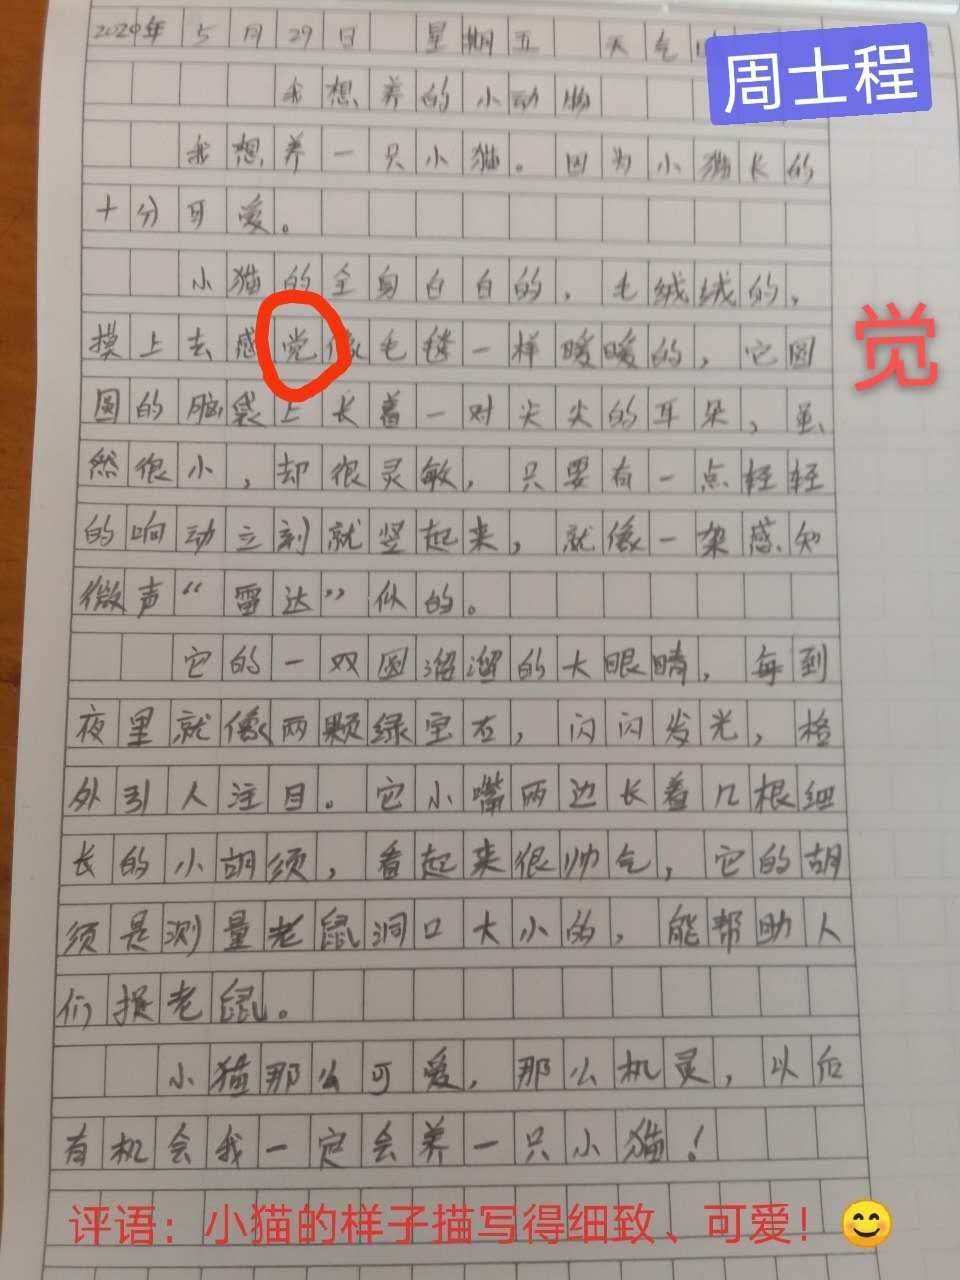 2020年5月29日 星期五 天气
周士程
我想养的小动物
我想养一只小猫。因为小猫长的
十分可爱。
小猫的全身白白的，毛绒绒的，
摸上去感觉像毛毯一样暖暖的，它圆
觉
圆的脑袋上长着一对尖尖的耳朵，虽
然很小，却很灵敏，只要有一点轻轻
的响动立刻就竖起来，就像一架感知
微声“雷达”似的。
它的一双圆溜溜的大眼睛，每到
夜里就像两颗绿宝石，闪闪发光，格
外引人注目。它小嘴两边长着几根细
长的小胡须，看起来很帅气，它的胡
须是测量老鼠洞口大小的，能帮助人
们捉老鼠。
小猫那么可爱，那么机灵，以后
有机会我一定会养一只小猫！
评语：小猫的样子描写得细致、可爱！😊